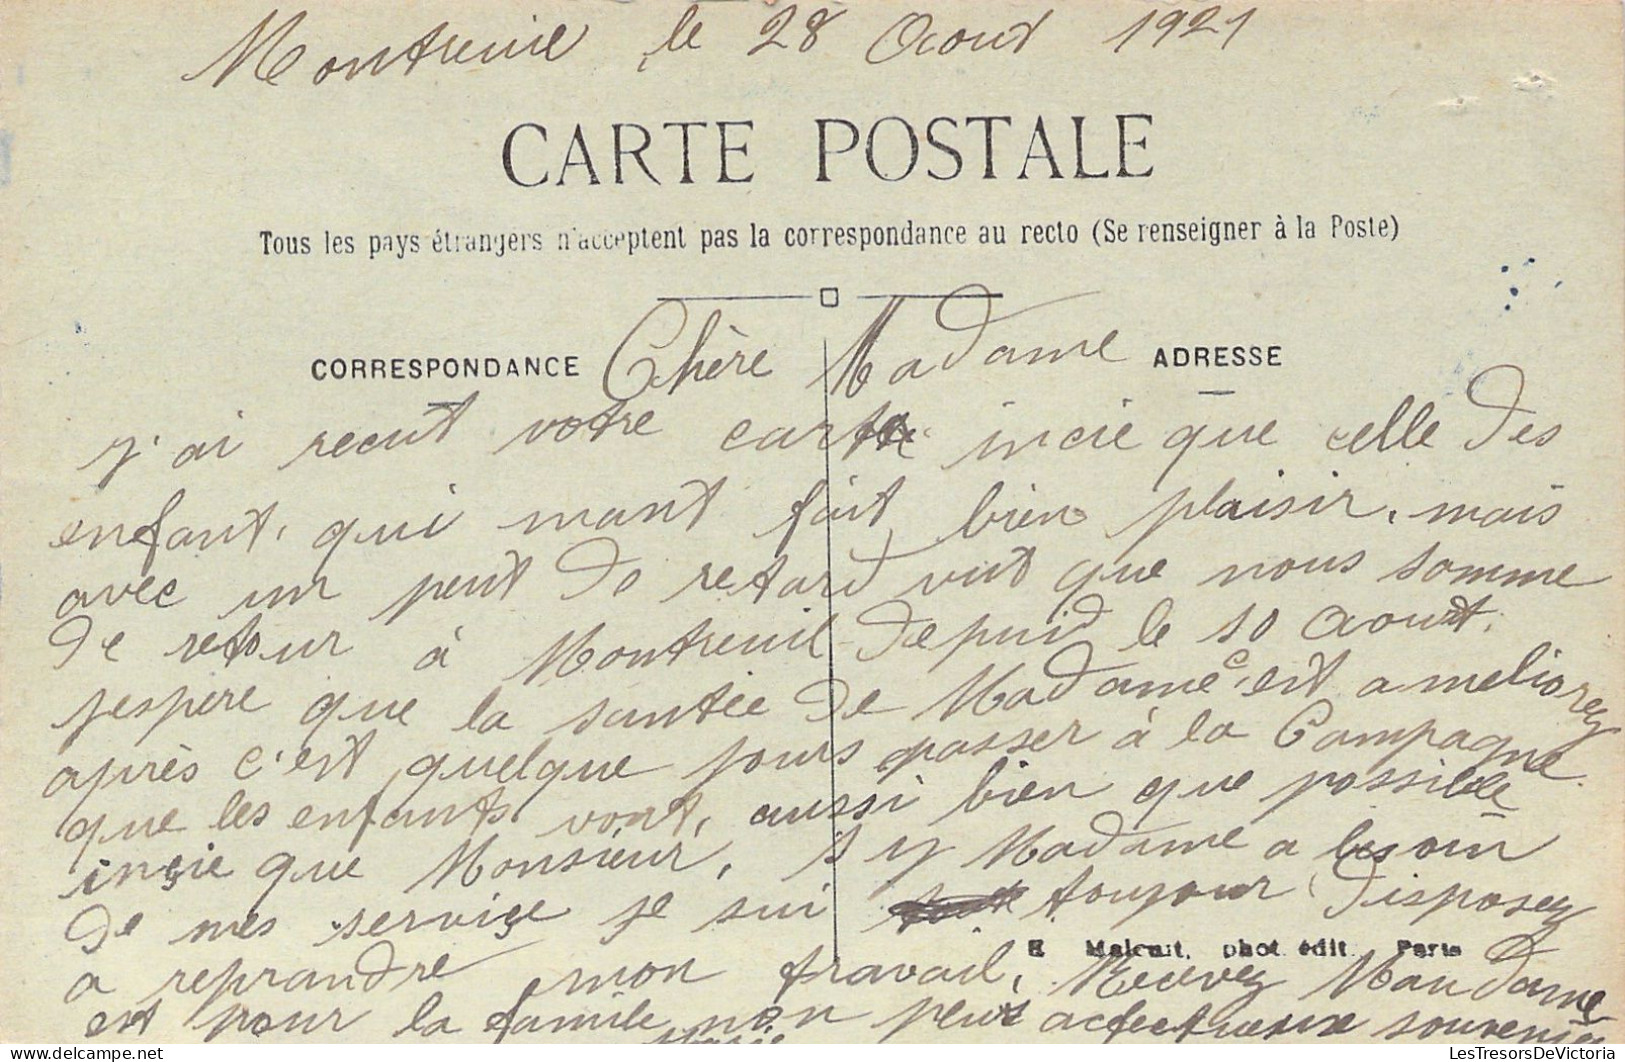 Montreuil, le 28 Aout 1921
CARTE POSTALE
Tous les pays étrangers n'acceptent pas la correspondance au recto (Se renseigner à la Poste)
CORRESPONDANCE Chère Madame ADRESSE
j'ai recut votre carte incie que celle des
enfant, qui mant fait bien plaisir, mais
avec un peut de retard vut que nous somme
de retour à Montreuil depuid le 10 Aout.
jespère que la santée de Madame est ameliorez
après c'est quelque jours passer à la Campagne
que les enfants vont, aussi bien que possible
inçie que Monsieur, s'y Madame a besoin
de mes serviçe je sui toujour disposez
E. Malcuit, phot. édit. Paris
a reprandre mon travail, Recevez Maudame
et pour la famile mon plus affectueux souvenir
Marie
LesTresorsDeVictoria | www.delcampe.net